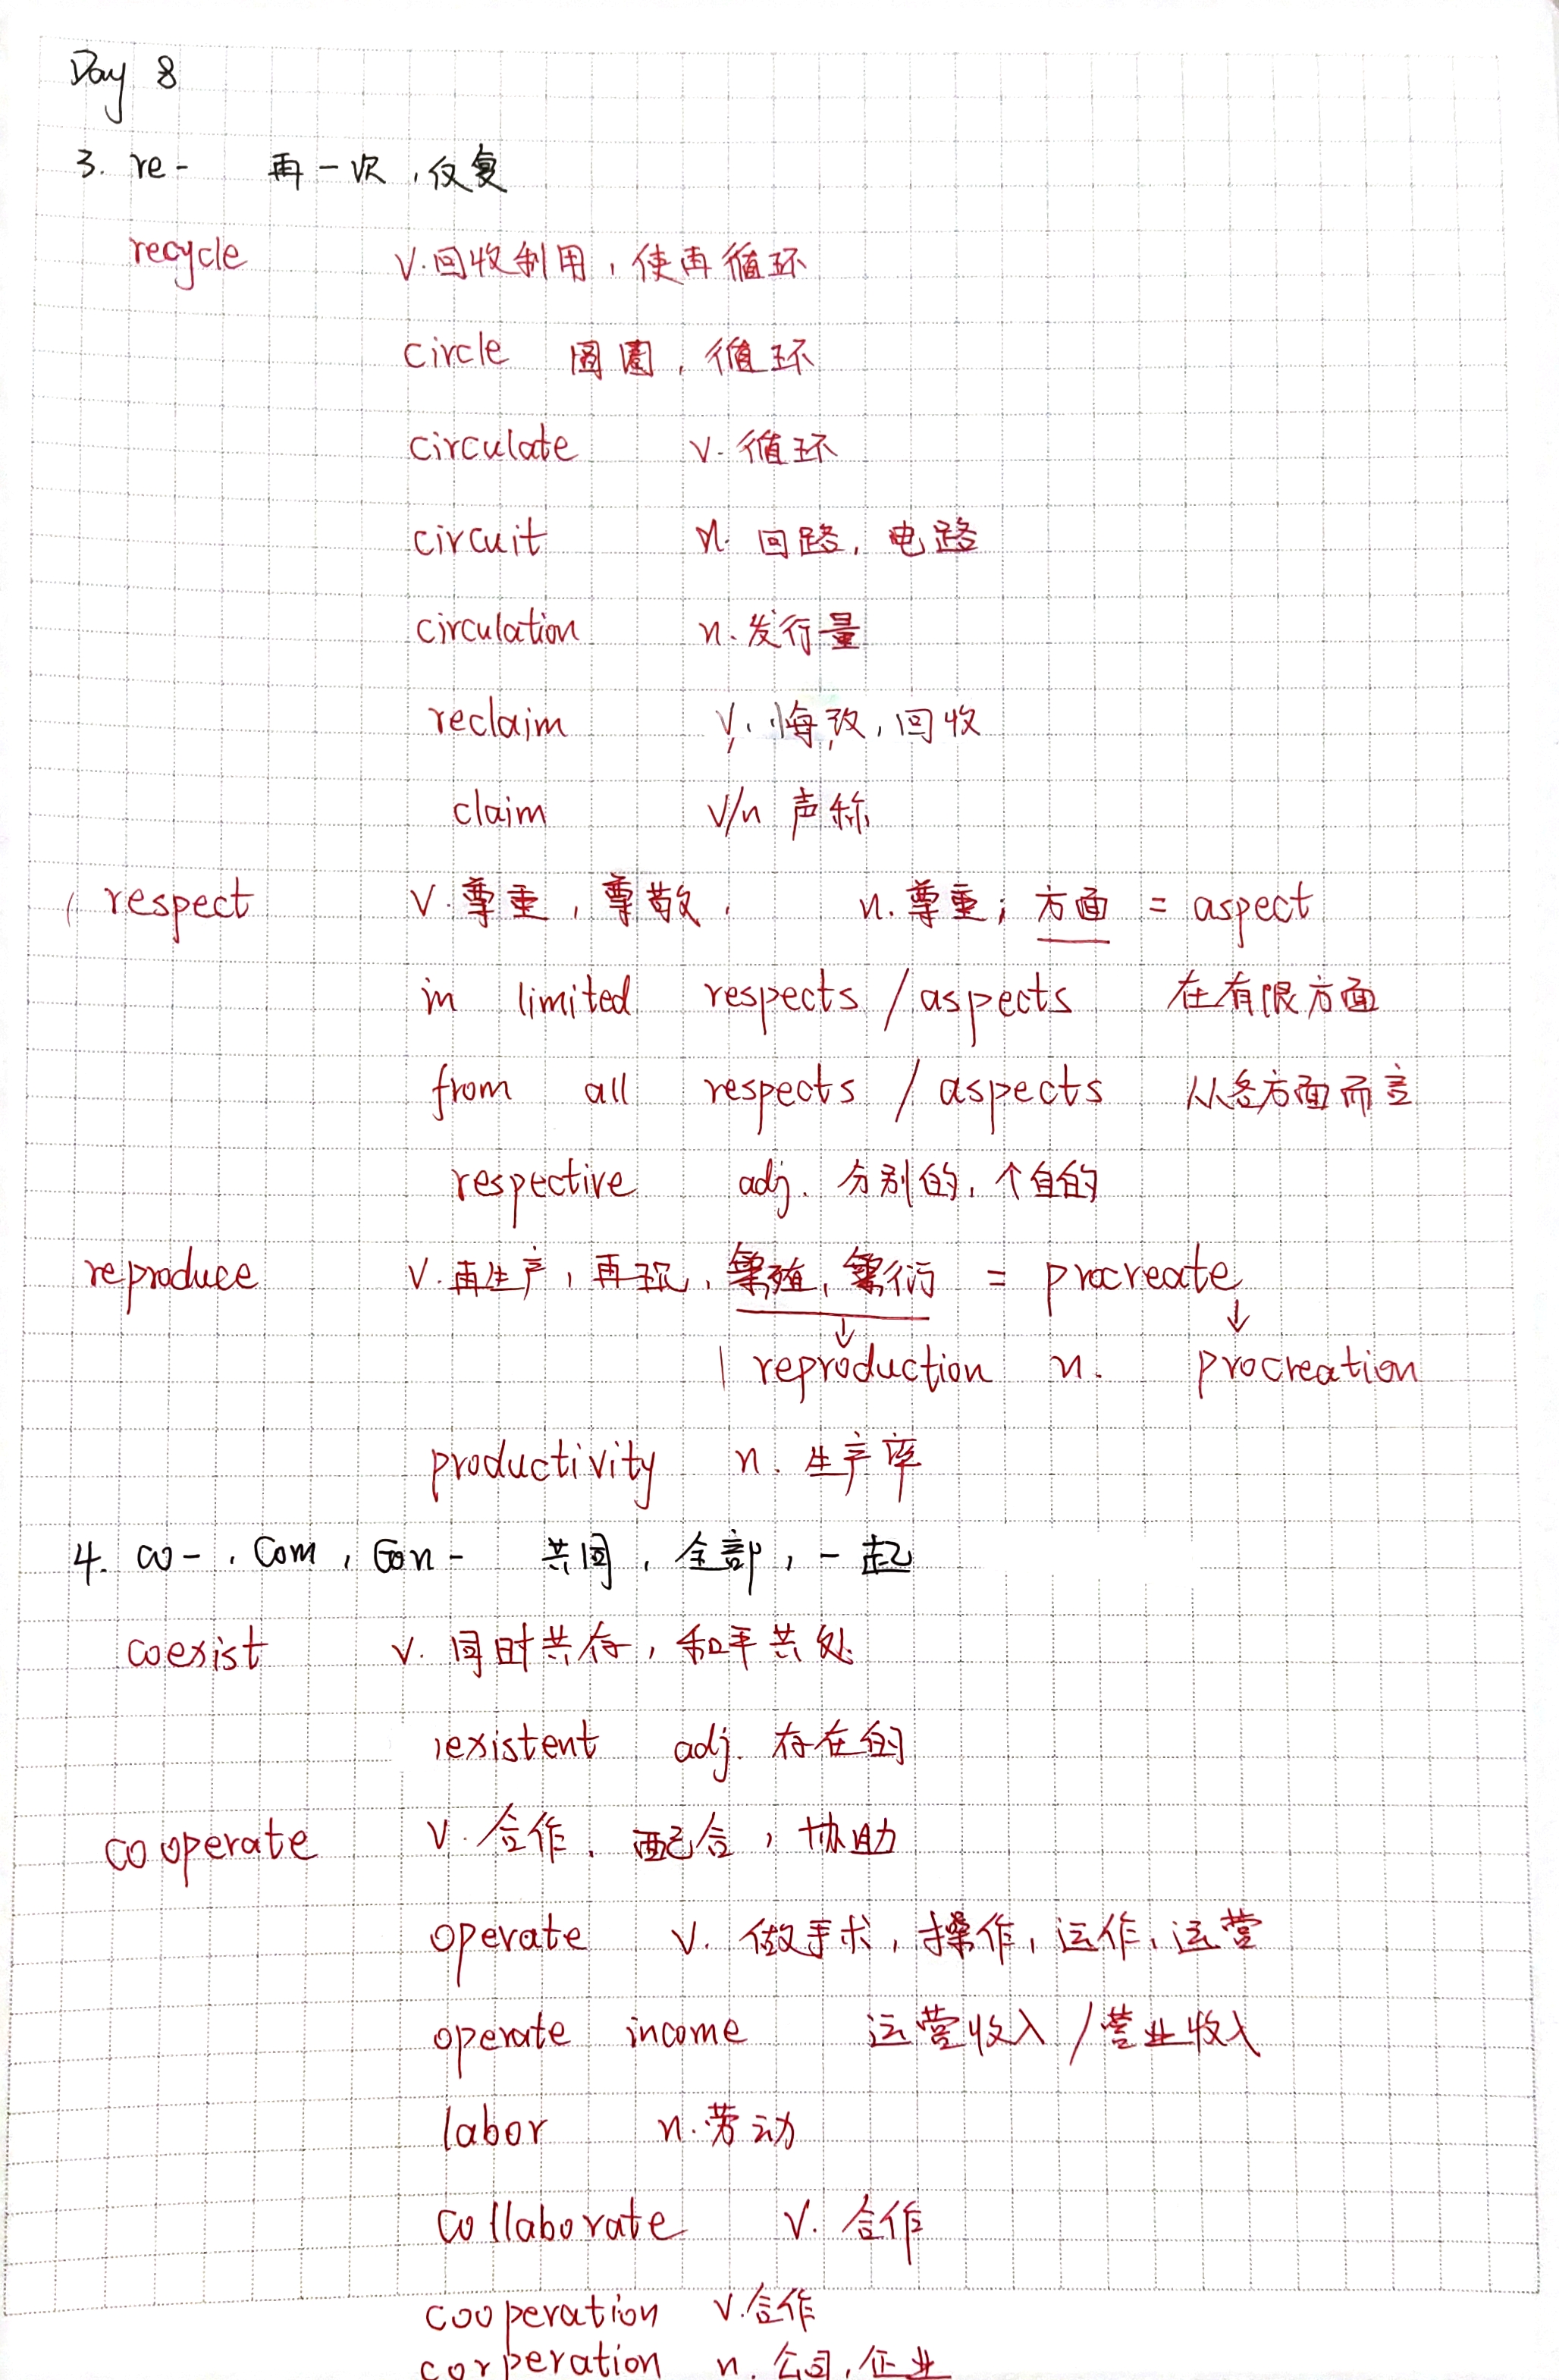 Day 8
3. re- 再一次，反复
recycle v.回收利用，使再循环
circle 圆圈，循环
circulate v.循环
circuit n.回路，电路
circulation n.发行量
reclaim v.悔改，回收
claim v/n 声称
respect v.尊重，尊敬， n.尊重；方面 = aspect
in limited respects / aspects 在有限方面
from all respects / aspects 从各方面而言
respective adj. 分别的，个自的
reproduce v.再生产，再现，繁殖，繁衍 = procreate
↓ ↓
reproduction n. procreation
productivity n. 生产率
4. co-，com，con- 共同，全部，一起
coexist v. 同时共存，和平共处
existent adj. 存在的
cooperate v.合作，配合，协助
operate v. 做手术，操作，运作，运营
operate income 运营收入/营业收入
labor n.劳动
collaborate v. 合作
cooperation v.合作
corperation n.公司，企业